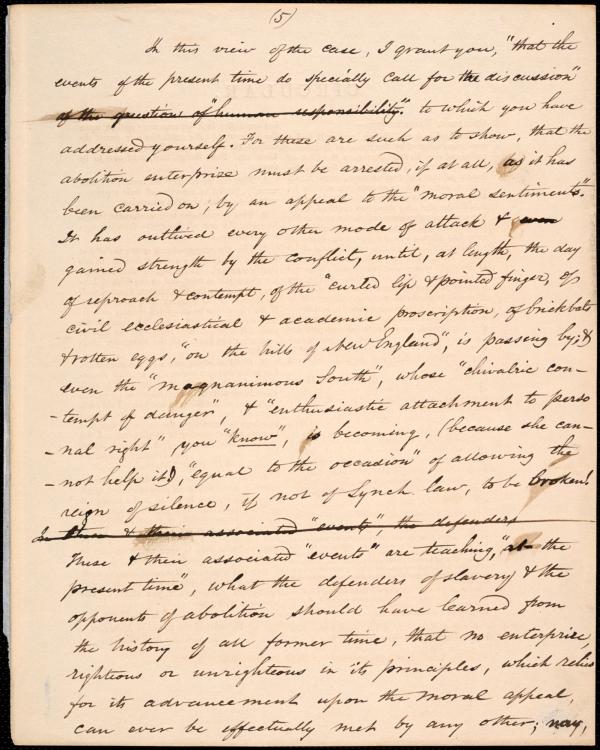 (5)
In this view of the case, I grant you, "that the
events of the present time do specially call for the discussion"
of the question of "human responsibility," to which you have
addressed yourself. For these are such as to show, that the
abolition enterprize must be arrested, if at all, as it has
been carried on, by an appeal to the "moral sentiments".
It has outlived every other mode of attack & even
gained strength by the conflict, until, at length, the day
of reproach & contempt, of the "curled lip & pointed finger, of
civil ecclesiastical & academic proscription, of brickbats
& rotten eggs, "on the hills of New England", is passing by; &
even the "magnanimous South", whose "chivalric con-
-tempt of danger", & "enthusiastic attachment to perso
-nal right" you "know", is becoming, (because she can-
-not help it) "equal to the occasion" of allowing the
reign of silence, if not of Lynch law, to be broken!
In these & their associated "events", the defenders
These & their associated "events" are teaching, "at the
present time", what the defenders of slavery & the
opponents of abolition should have learned from
the history of all former time, that no enterprize,
righteous or unrighteous in its principles, which relies
for its advancement upon the moral appeal,
can ever be effectually met by any other; nay,